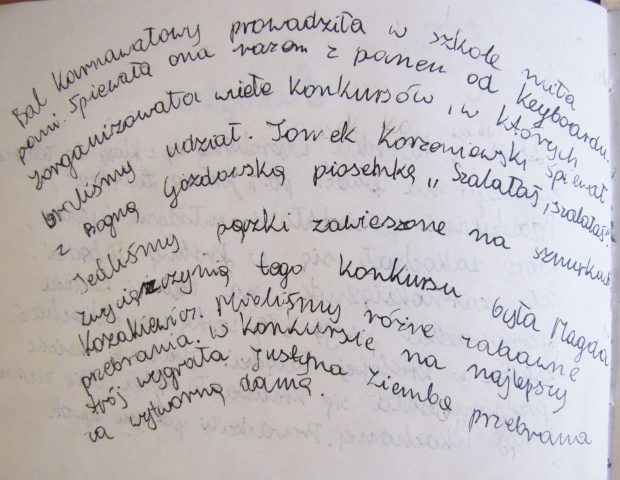 Bal Karnawałowy prowadziła w szkole miła
pani. Śpiewała ona razem z panem od Keyboardu.
Zorganizowała wiele konkursów, w których
braliśmy udział. Tomek Korzeniowski śpiewał
z Bogną Gozdowską piosenkę „Szalałaś, szalałaś”
Jedliśmy pączki zawieszone na sznurkach
zwyciężczynią tego konkursu była Magda
Kozakiewicz. Mieliśmy różne zabawne
przebrania. W konkursie na najlepszy
strój wygrała Justyna Ziemba przebrana
za wytworną damą.